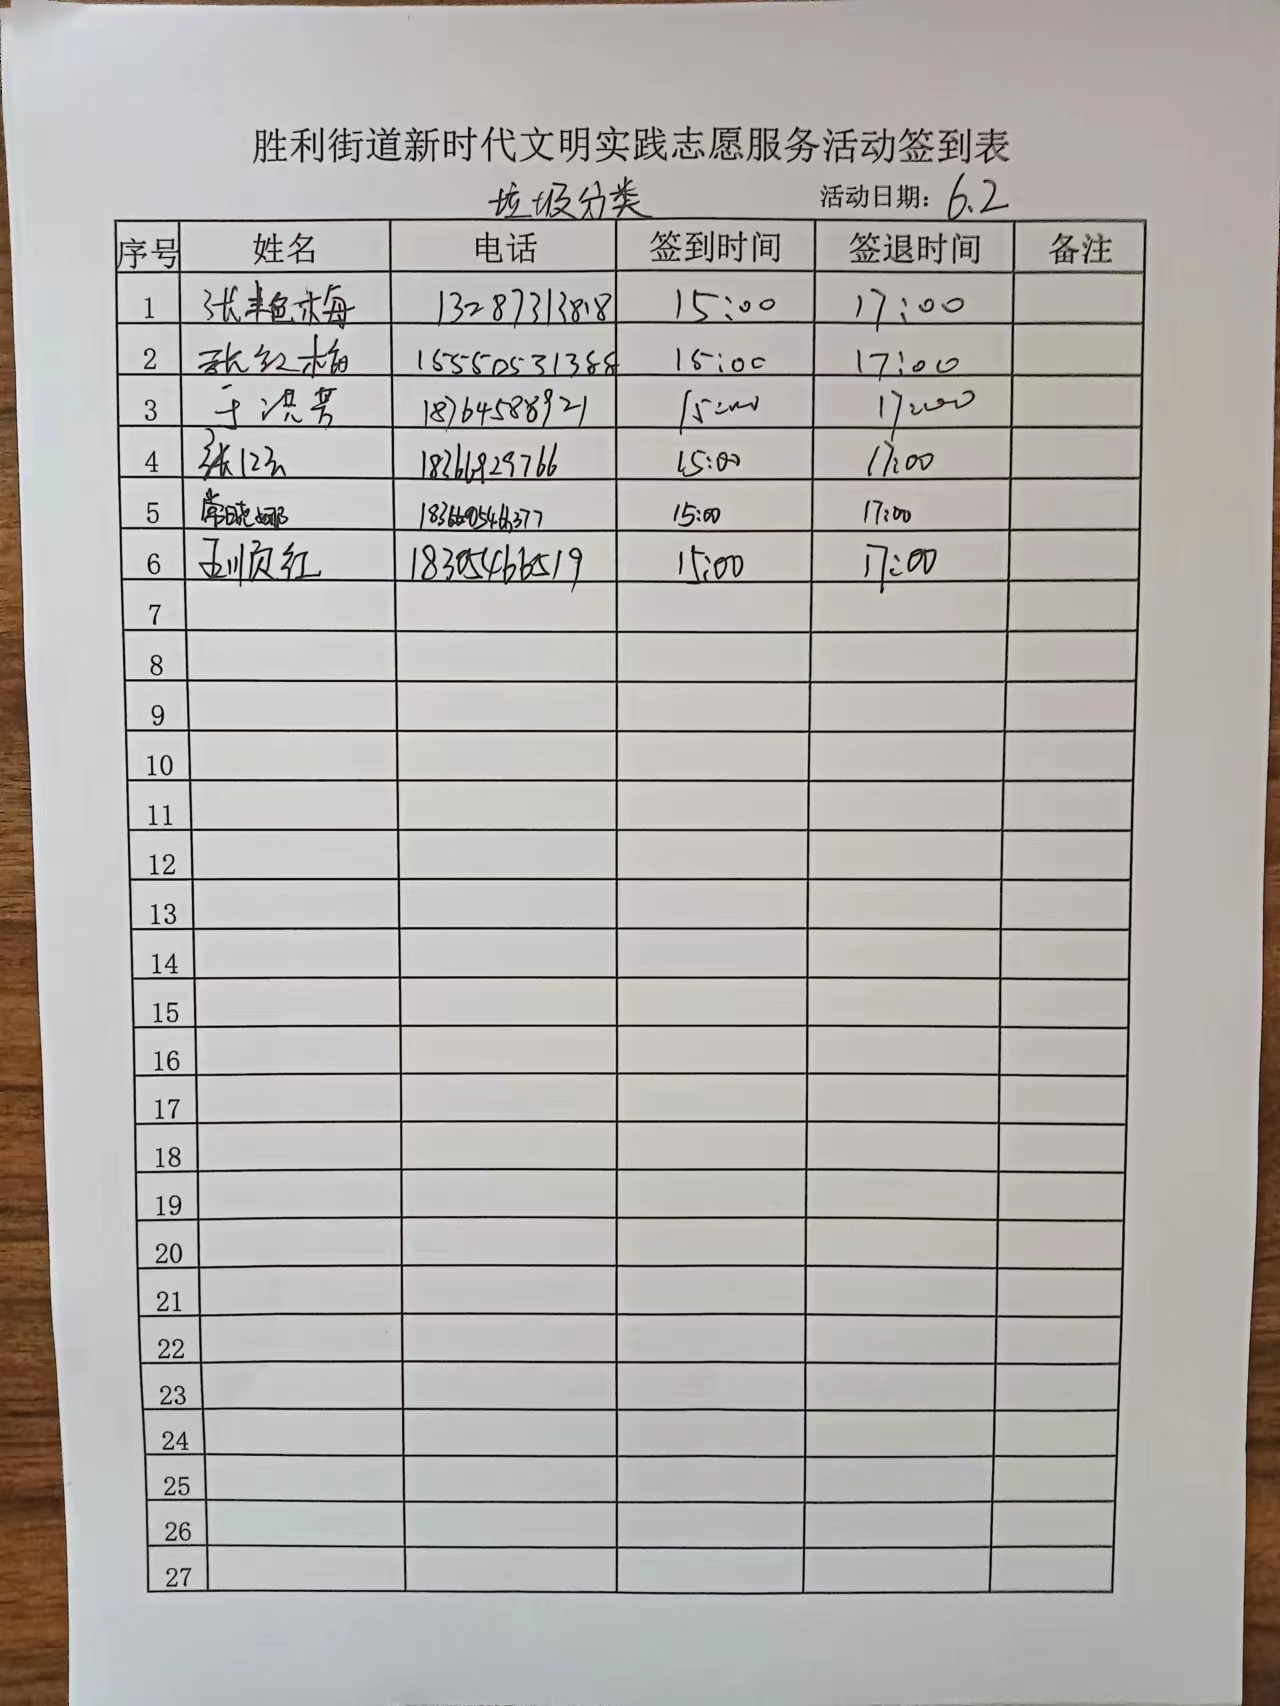 胜利街道新时代文明实践志愿服务活动签到表
垃圾分类 活动日期: 6.2
序号 姓名 电话 签到时间 签退时间 备注
1 张艳梅 13287313818 15:00 17:00
2 张红梅 15550531388 15:00 17:00
3 于洪芳 18764588921 15:00 17:00
4 张 18366929766 15:00 17:00
5 常晓娜 15:00 17:00
6 王顺红 18305466519 15:00 17:00
7
8
9
10
11
12
13
14
15
16
17
18
19
20
21
22
23
24
25
26
27